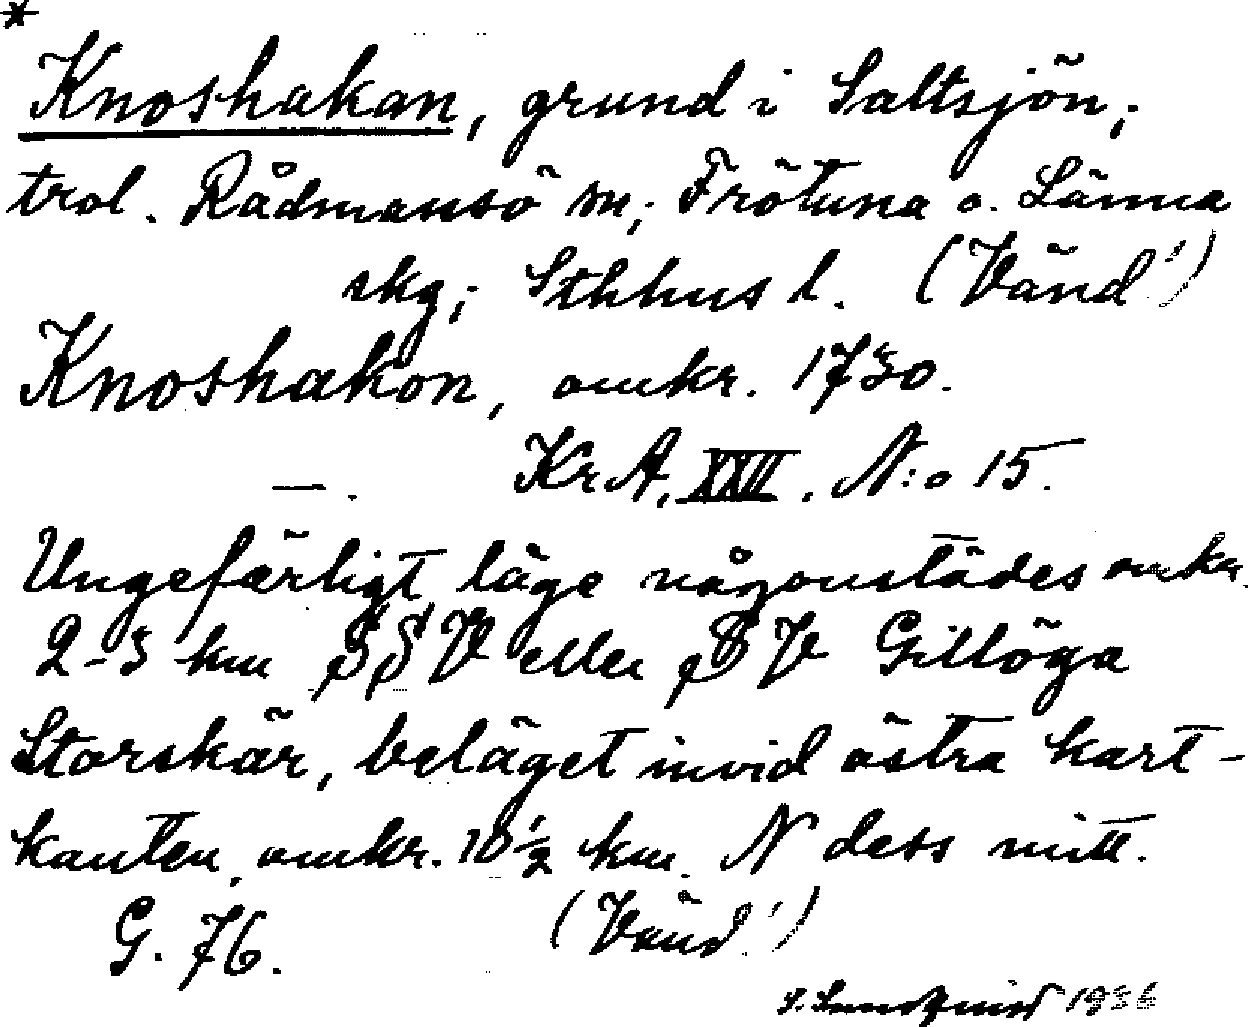 *
Knoshakan, grund i Saltsjön;
trol. Rådmansö sn; Frötuna o. Länna
skg; Sthhus l. (Vänd!)
Knoshakon, omkr. 1730.
—. KrA, XXVII. N:o 15.
Ungefärligt läge någonstädes omkr.
2-3 km SSV eller SV Gillöga
Storskär, beläget invid östra kart-
kanten, omkr. 10½ km. N dess mitt.
G. 76. (Vänd!)
S. Sundquist 1936